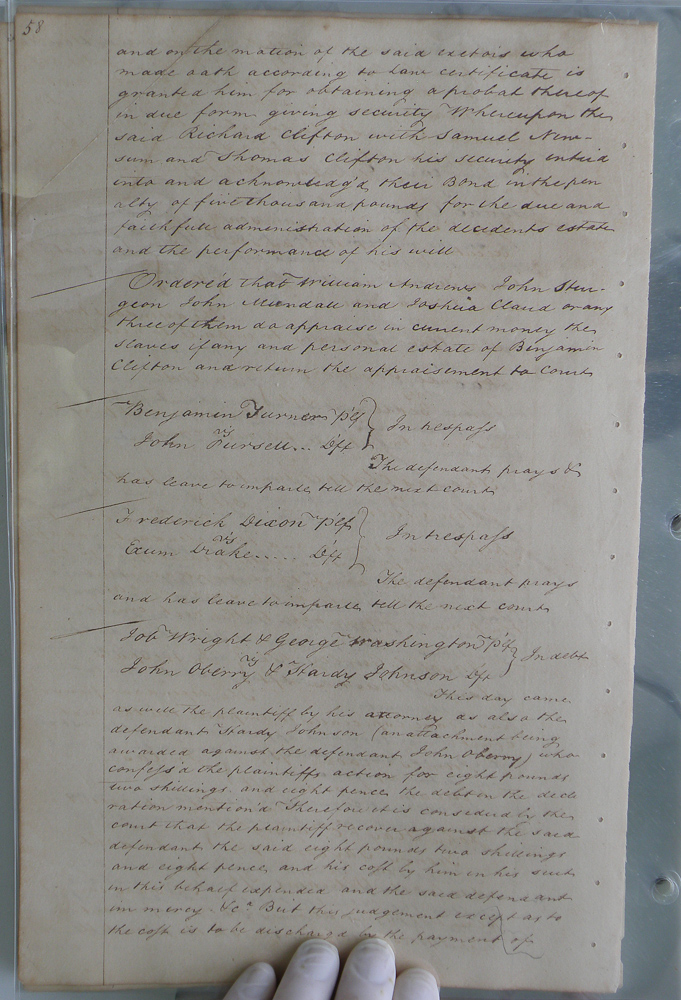 58
and on the motion of the said exetors who
made oath according to Law certificate is
granted him for obtaining a probat thereof
in due form giving security Whereupon the
said Richard Clifton with Samuel New-
sum and Thomas Clifton his security entred
into and acknowledg'd their Bond in the pen
alty of five thousand pounds for the due and
faithfull administration of the decedents estate
and the performance of his will
Ordered that William Andrews John Stur-
geon John Mundall and Joshua Claud or any
three of them do appraise in current money the
slaves if any and personal estate of Benjamin
Clifton and return the appraisement to Court
Benjamin Turner Plf
vs
In trespass
John Pursell... Dft
The defendant prays &
has leave to imparle till the next court
Frederick Dixon Plf
vs
In trespass
Exum Drake..... Dft
The defendant prays
and has leave to imparle till the next court
Job Wright & George Washington Plf
vs
In debt
John Oberry & Hardy Johnson Dft
This day came
as well the plaintiff by his attorney as also the
defendant Hardy Johnson (an attachment being
awarded against the defendant John Oberry) who
confess'd the plaintiffs action for eight pounds
two shillings and eight pence the debt in the decla
ration mention'd Therefore it is considered by the
court that the plaintiff recover against the said
defendant the said eight pounds two shillings
and eight pence and his cost by him in his suit
in this behalf expended and the said defendant
in mercy &c.a But this judgement except as to
the cost is to be discharg'd by the payment of